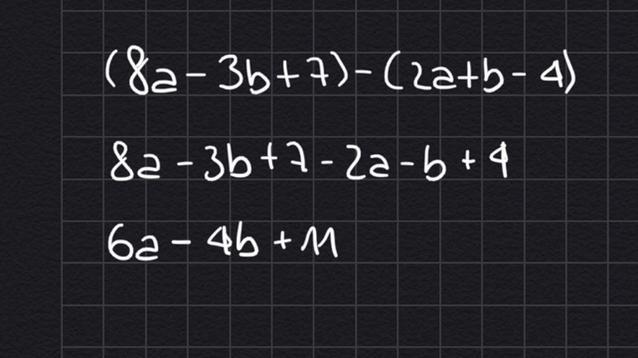 (8a - 3b + 7) - (2a + b - 4)
8a - 3b + 7 - 2a - b + 4
6a - 4b + 11